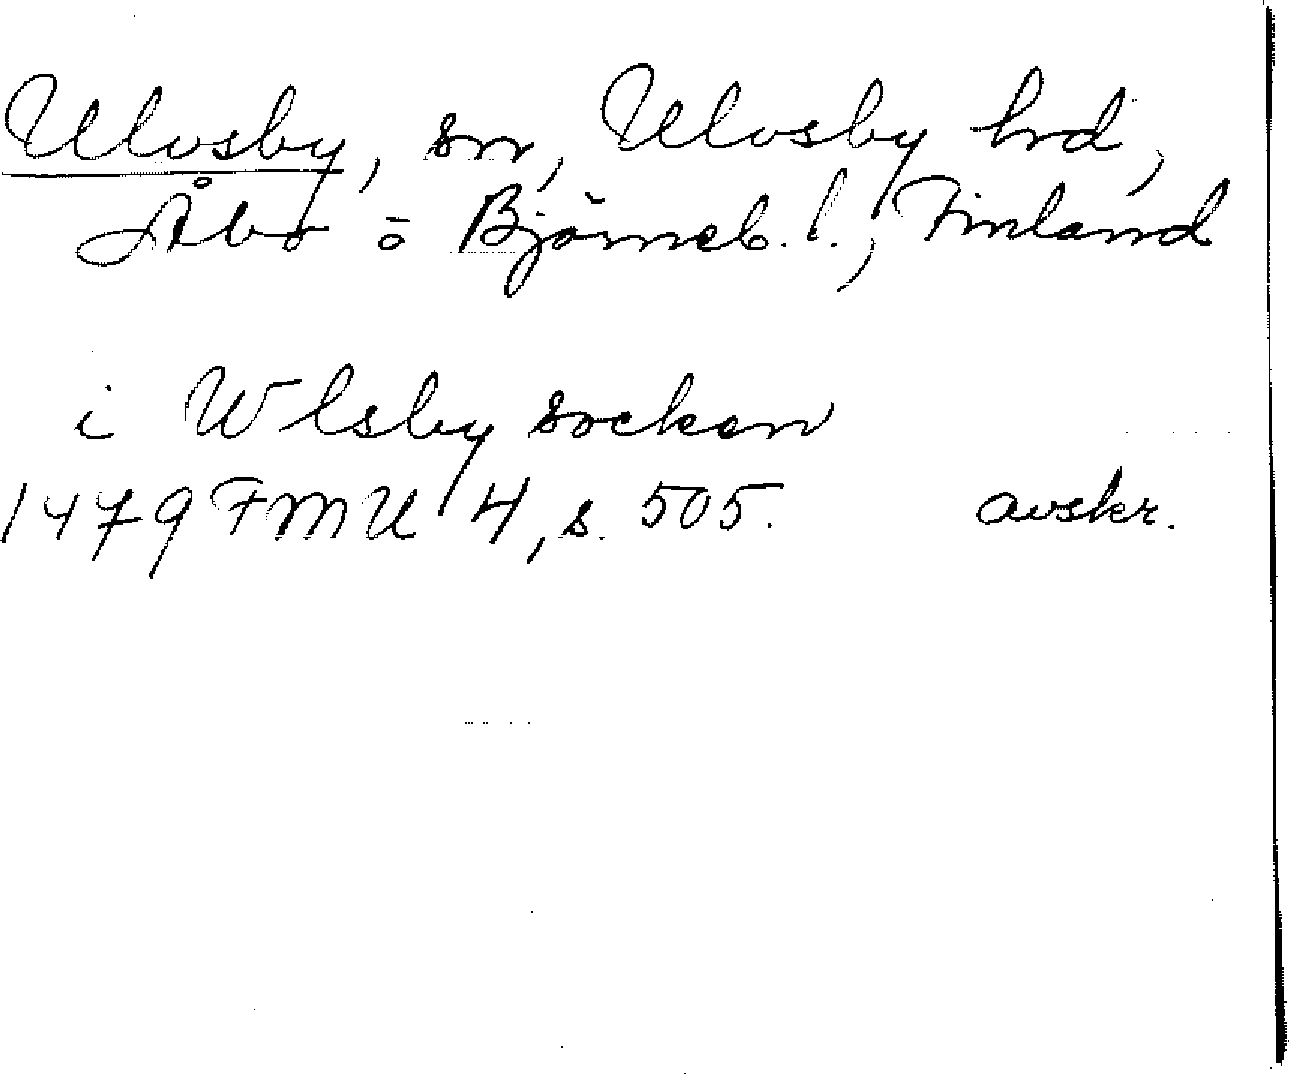 Ulvsby, sn, Ulvsby hrd,
Åbo o Björneb. l., Finland
i Wlsby socken
1479 FMU 4, s. 505. avskr.